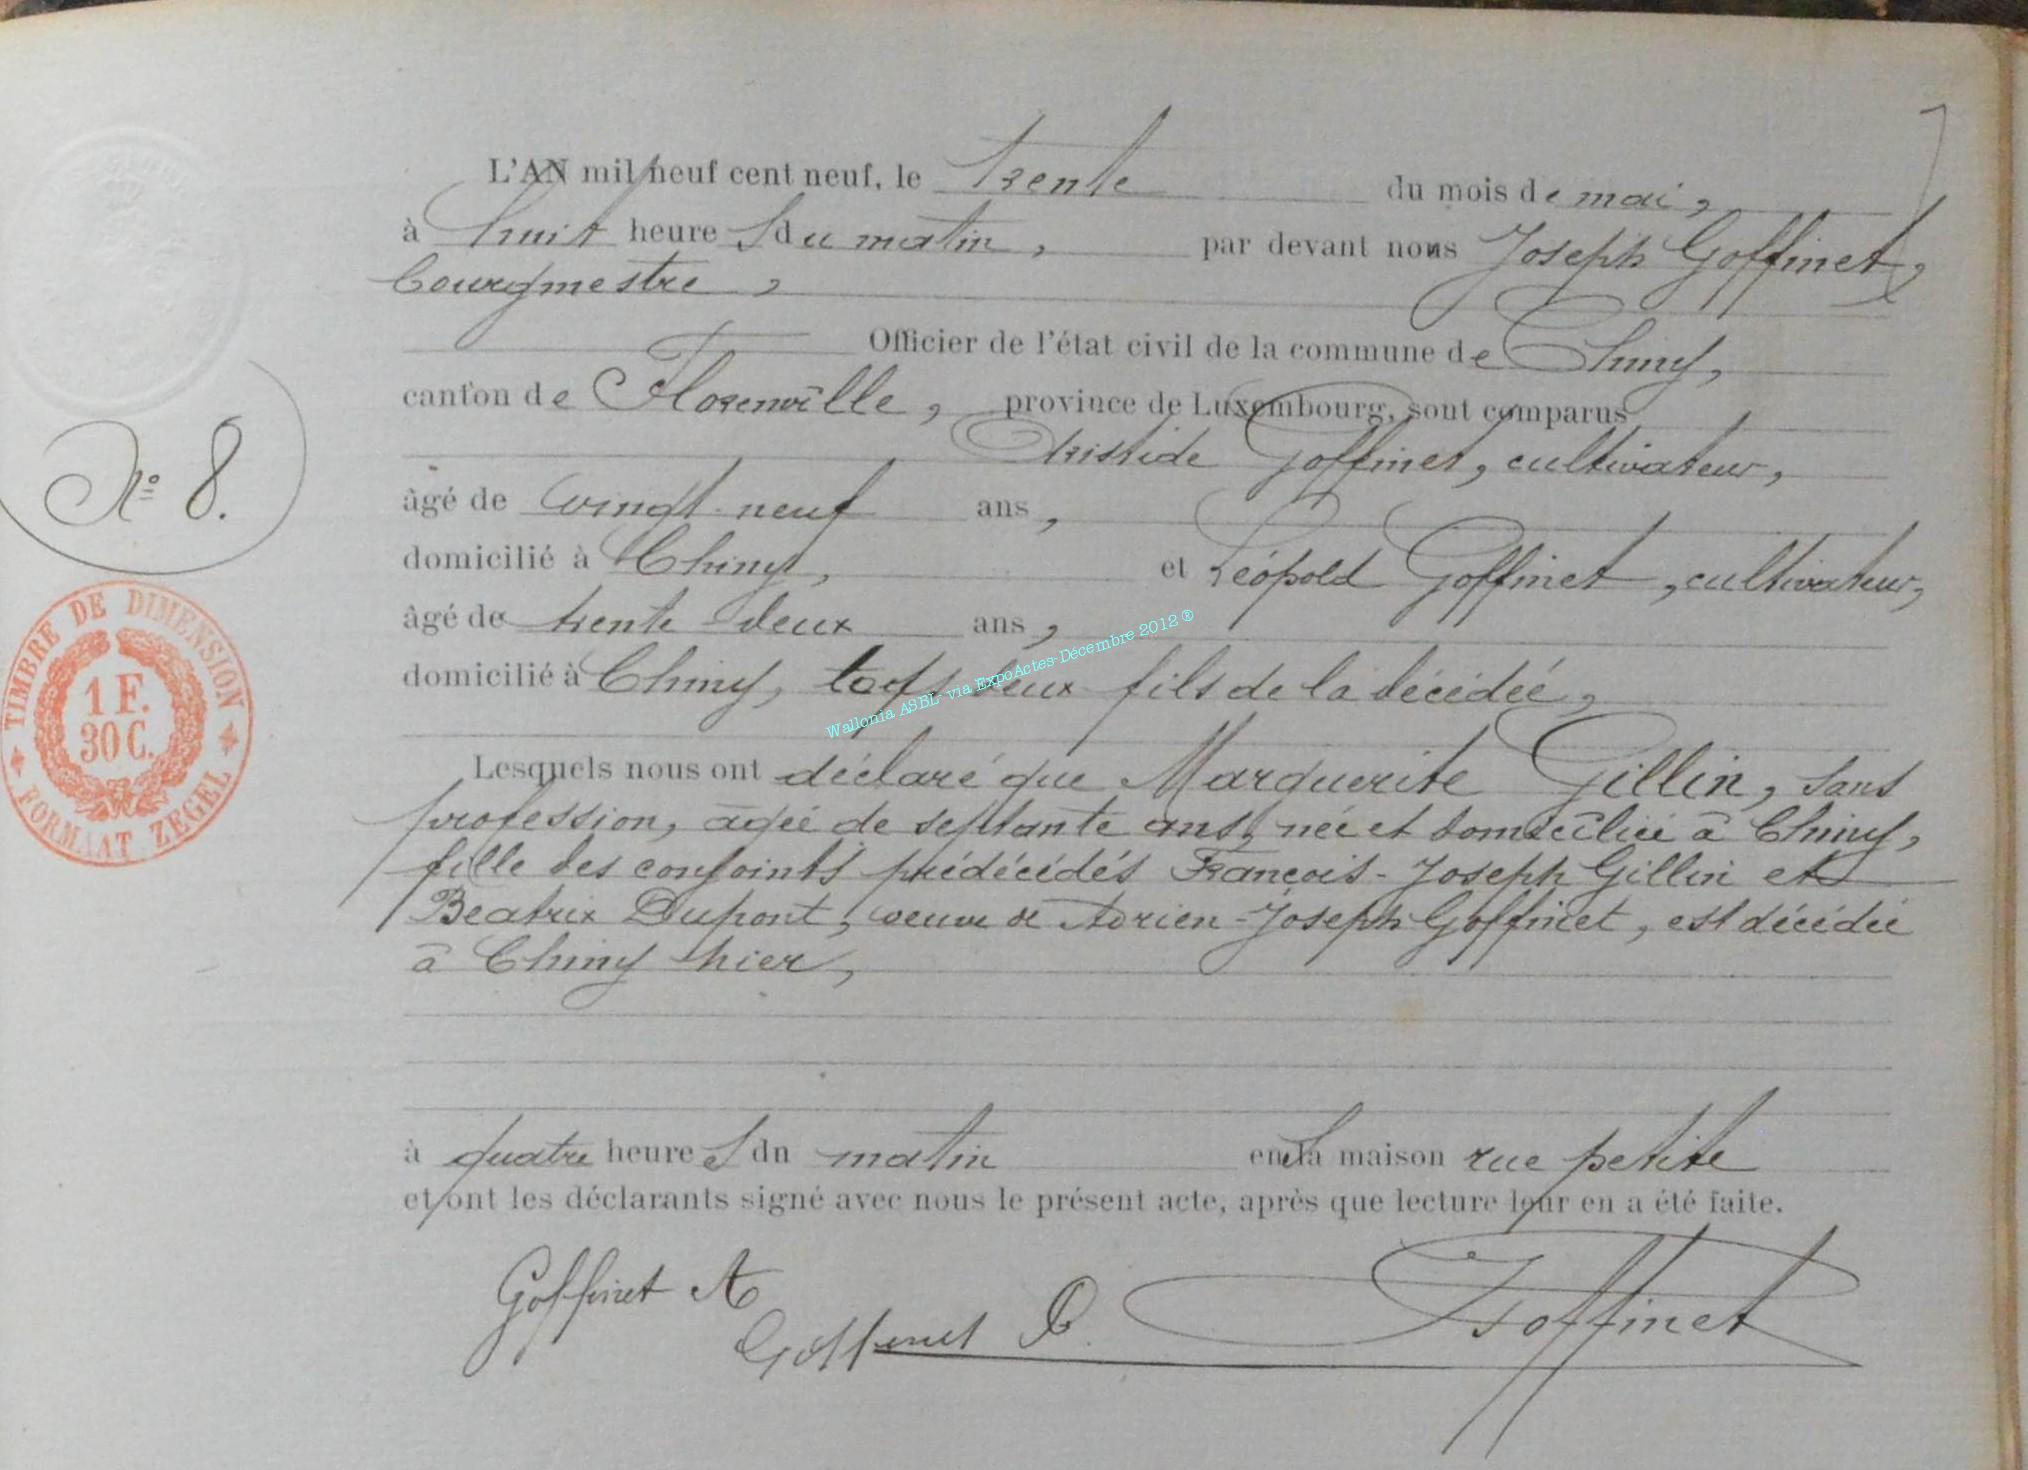 L'AN mil neuf cent neuf, le trente du mois de mai,
à huit heures du matin, par devant nous Joseph Goffinet,
bourgmestre,
Officier de l'état civil de la commune de Chiny,
canton de Florenville, province de Luxembourg, sont comparus
Aristide Goffinet, cultivateur,
âgé de vingt-neuf ans,
domicilié à Chiny, et Léopold Goffinet, cultivateur,
âgé de trente-deux ans,
domicilié à Chiny, tous deux fils de la décédée,
Lesquels nous ont déclaré que Marguerite Gillin, sans
profession, âgée de septante ans, née et domiciliée à Chiny,
fille des conjoints prédécédés François-Joseph Gillin et
Beatrix Dupont, veuve de Adrien-Joseph Goffinet, est décédée
à Chiny hier,
à quatre heures du matin en sa maison rue petite
et ont les déclarants signé avec nous le présent acte, après que lecture leur en a été faite.
Goffinet A
Goffinet L.
Goffinet
N° 8.
TIMBRE DE DIMENSION
1 F.
30 C.
FORMAAT ZEGEL
Wallonia ASBL- via ExpoActes-Décembre 2012 ®